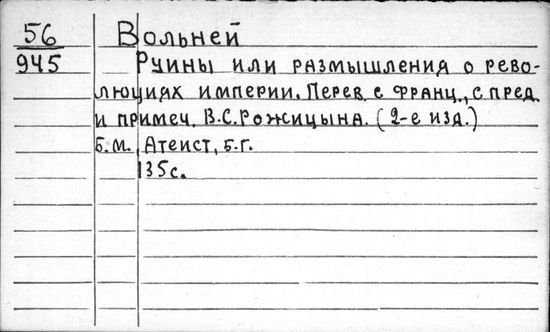 56 Вольней
945 Руины или размышления о рево-
люциях империи. Перев. с франц., с пред.
и примеч. В.С.Рожицына. (2-е изд.)
б.м. Атеист, б.г.
135с.